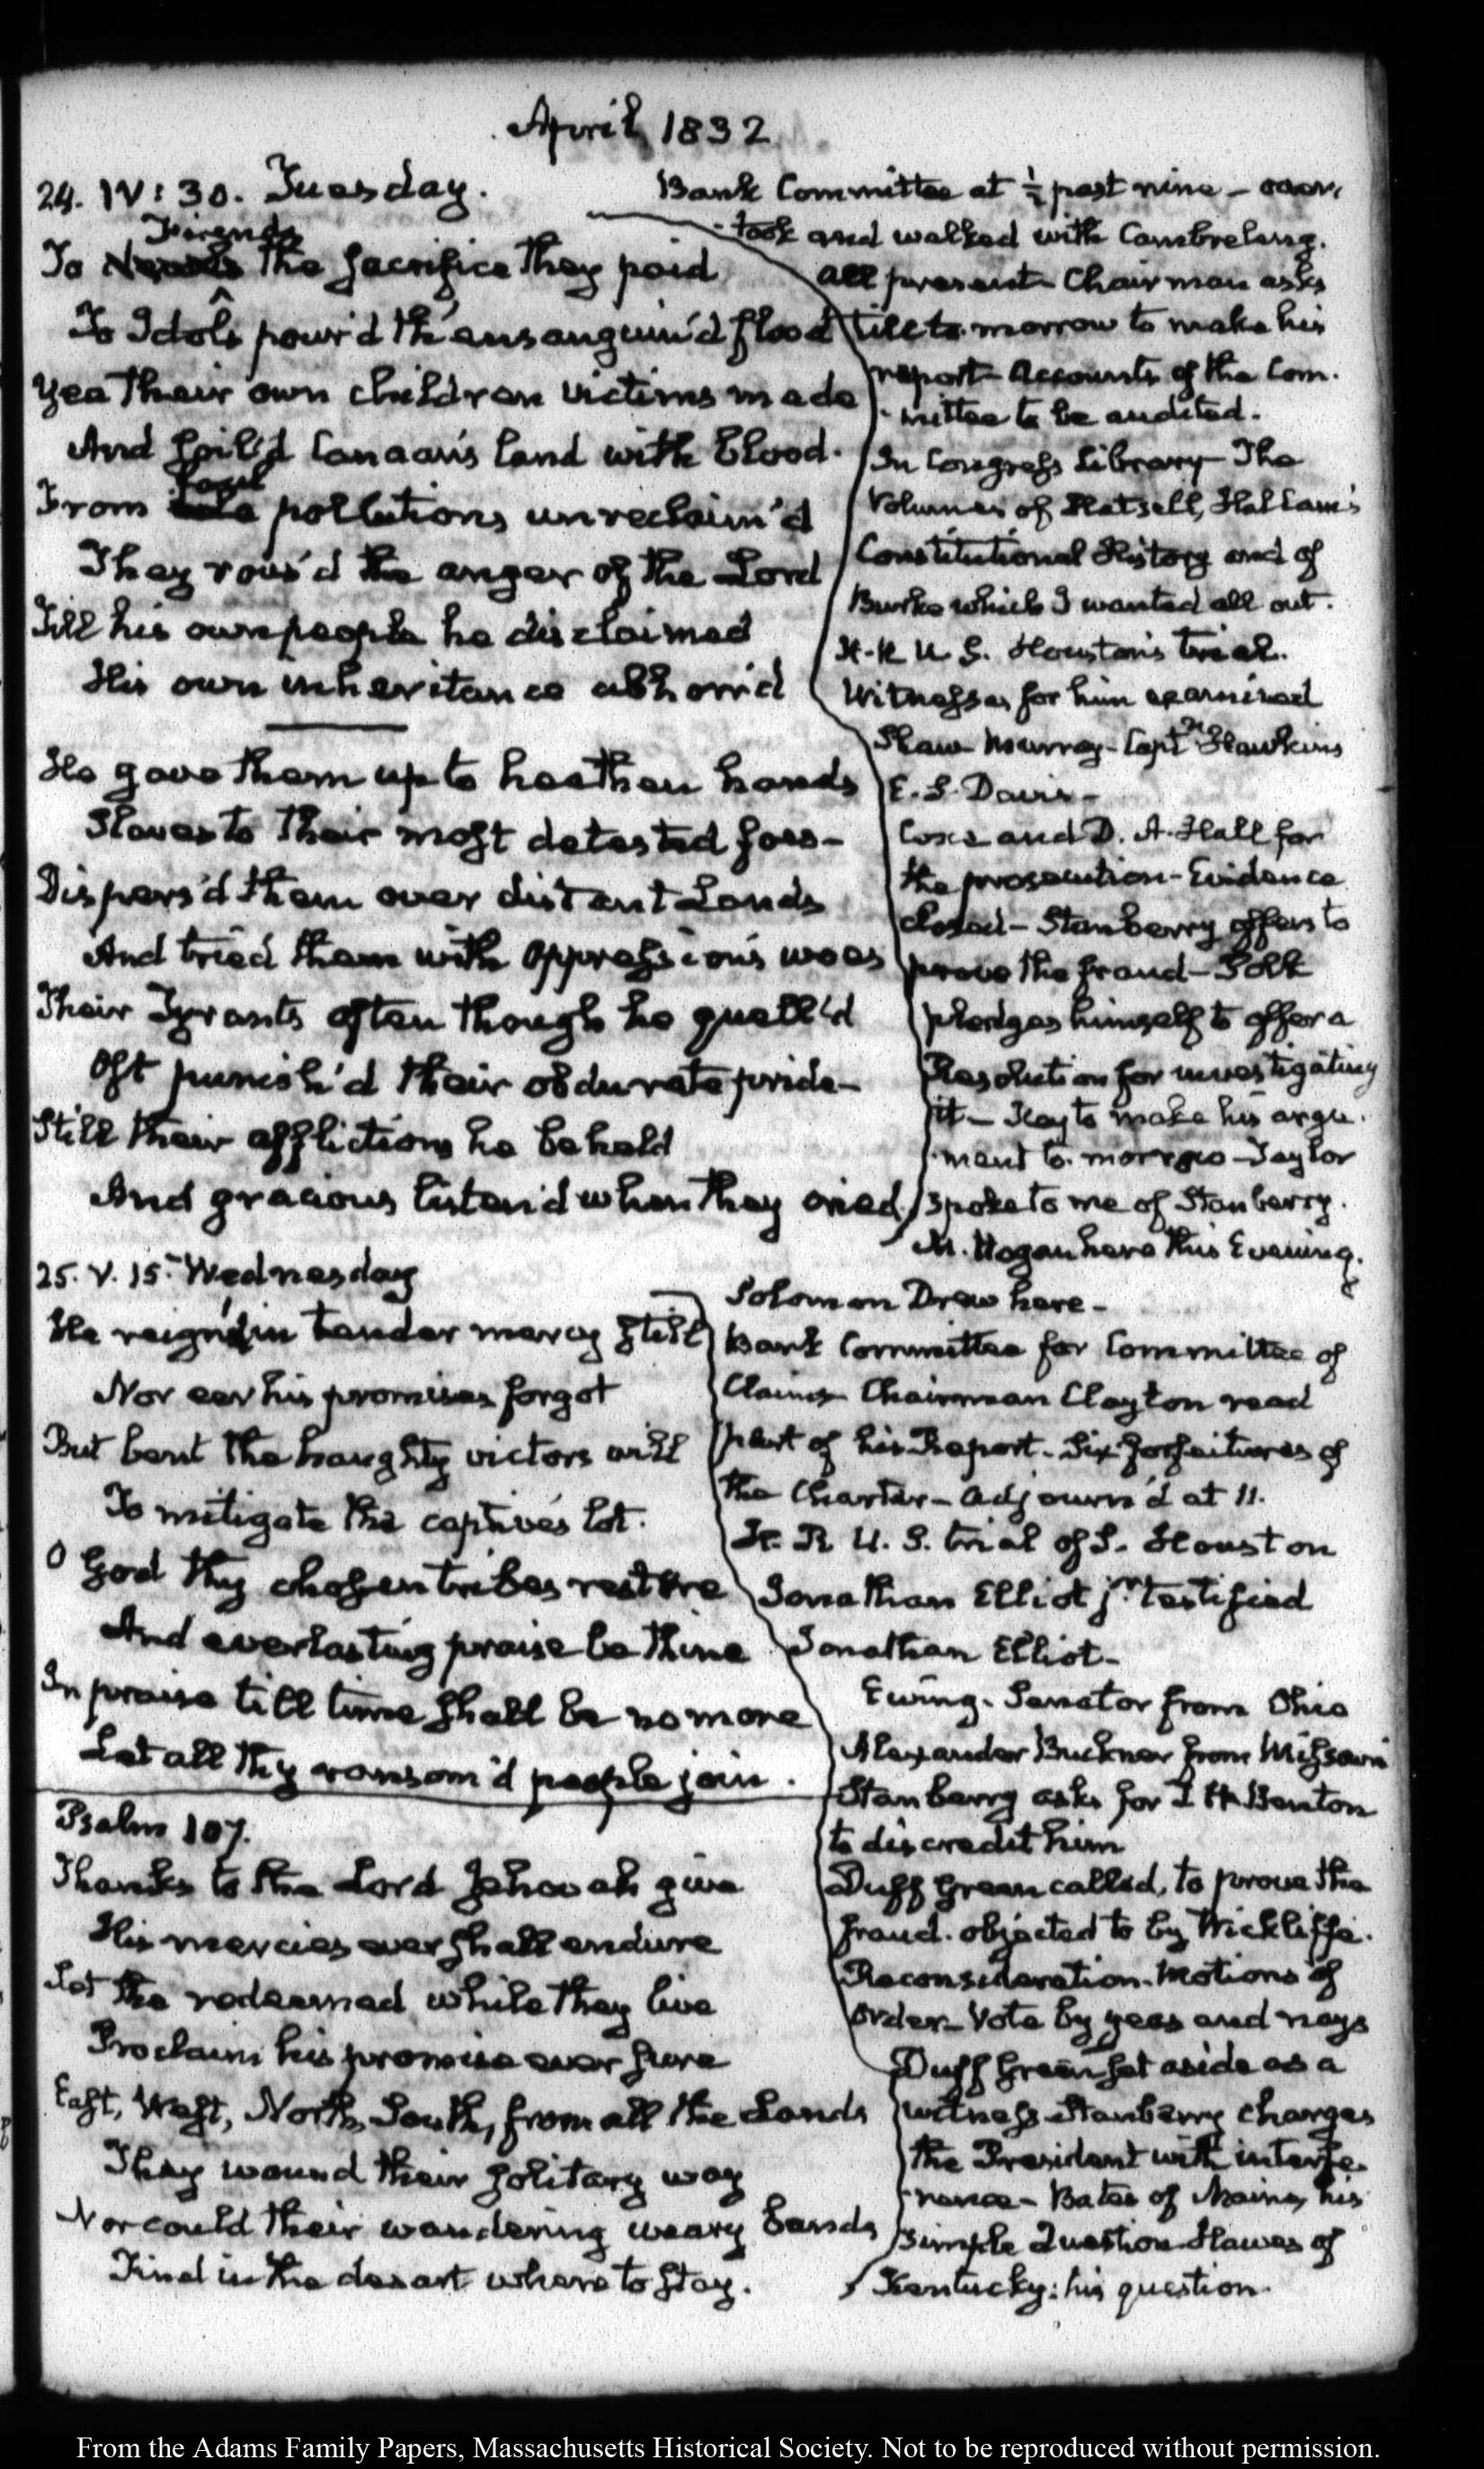 April 1832
24. IV: 30. Tuesday.
Fiends
To the Sacrifice they paid
To Idols pour'd th' ensanguin'd flood
Yea their own children victims made
And soil'd Canaan's land with blood.
foul
From pollutions unreclaim'd
They rous'd the anger of the Lord
Till his own people he disclaimed
His own inheritance abhorr'd
He gave them up to heathen hands
Slaves to their most detested foes—
Dispers'd them over distant Lands
And tried them with oppression's woes
Their Tyrants often though he quell'd
Oft punish'd their obdurate pride—
Still their afflictions he beheld
And gracious listen'd when they cried
Bank Committee at ½ past nine – over,
-took and walked with Cambreleng.
all present – Chairman asks
till to-morrow to make his
report – Accounts of the Com-
-mittee to be audited.
In Congress Library – The
Volumes of Hatsell, Hallam's
Constitutional History and of
Burke which I wanted all out.
H.R U.S. Houston's trial.
Witnesses for him examined
Shaw – Murray – Captn Hawkins
E. S. Davis –
Coxe and D. A. Hall for
the prosecution – Evidence
closed – Stanberry offers to
prove the fraud – Polk
pledges himself to offer a
Resolution for investigating
it – Key to make his argu-
-ment to-morrow – Taylor
spoke to me of Stanberry.
Mr. Hogan here this Evening.
25. V. 15. Wednesday
He reign'd in tender mercy still
Nor ear his promises forgot
But bent the haughty victors will
To mitigate the captive's lot.
O God thy chosen tribes restore
And everlasting praise be thine
In praise till time shall be no more
Let all thy ransom'd people join.
Psalm 107.
Thanks to the Lord Jehovah give
His mercies ever shall endure
Let the redeemed while they live
Proclaim his promise ever sure
East, West, North, South, from all the Lands
They wound their solitary way
Nor could their wandering weary bands
Find in the desart where to stay.
Solomon Drew here –
Bank Committee for Committee of
Claims – Chairman Clayton read
part of his Report – Six forfeitures of
the Charter – adjourn'd at 11.
H. R U. S. trial of S. Houston
Jonathan Elliot jr. testified
Jonathan Elliot –
Ewing – Senator from Ohio
Alexander Buckner from Missouri
Stanberry asks for T H Benton
to discredit him
Duff Green called, to prove the
fraud. objected to by Wickliffe.
Reconsideration. Motions of
order – Vote by yeas and nays
Duff Green set aside as a
witness – Stanberry charges
the President with interfe-
-rence – Bates of Maine, his
simple Question – Hawes of
Kentucky: his question.
From the Adams Family Papers, Massachusetts Historical Society. Not to be reproduced without permission.